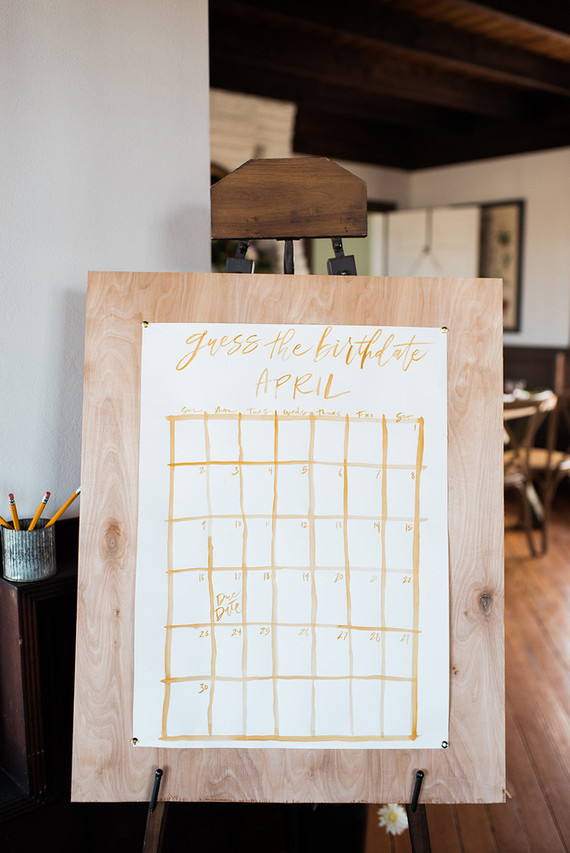 guess the birthdate
APRIL
Sun Mon Tues Weds Thurs Fri Sat
1
2 3 4 5 6 7 8
9 10 11 12 13 14 15
16 17 18 19 20 21 22
Due
Date
23 24 25 26 27 28 29
30